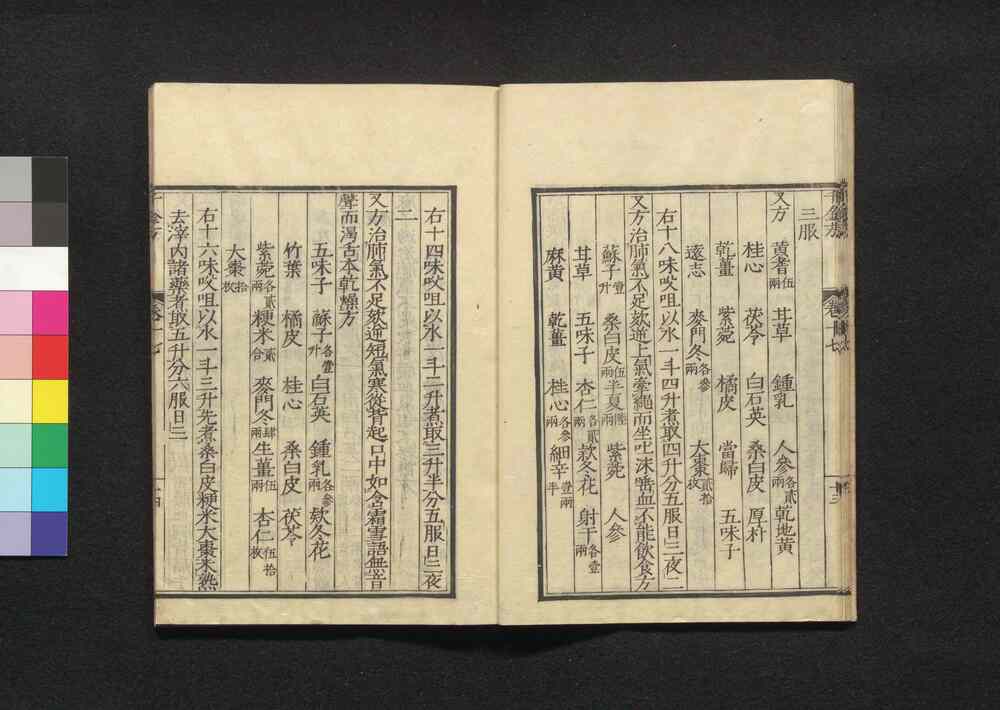 三服
又方 黃耆伍兩 甘草 鍾乳 人參各貳兩 乾地黃
桂心 茯苓 白石英 桑白皮 厚朴
乾薑 紫菀 橘皮 當歸 五味子
遠志 麥門冬各參兩 大棗貳拾枚
右十八味㕮咀以水一斗四升煮取四升分五服日三夜二
又方治肺氣不足欬逆上氣牽繩而坐吐沫唾血不能飲食方
蘇子壹升 桑白皮伍兩 半夏陸兩 紫菀 人參
甘草 五味子 杏仁各貳兩 款冬花 射干各壹兩
麻黃 乾薑 桂心各參兩 細辛壹兩半
右十四味㕮咀以水一斗二升煮取三升半分五服日三夜
二
又方治肺氣不足欬逆短氣寒從背起口中如含霜雪語無音
聲而渴舌本乾燥方
五味子 蘇子各壹升 白石英 鍾乳各參兩 款冬花
竹葉 橘皮 桂心 桑白皮 茯苓
紫菀各貳兩 粳米貳合 麥門冬肆兩 生薑伍兩 杏仁伍拾枚
大棗拾枚
右十六味㕮咀以水一斗三升先煮桑白皮粳米大棗米熟
去滓内諸藥煮取五升分六服日三
十四